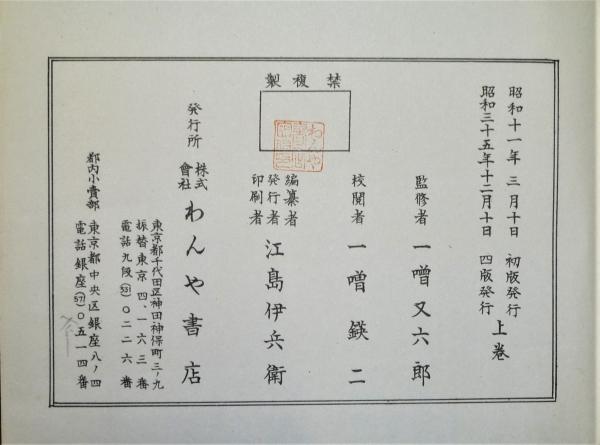 昭和十一年 三月十日 初版発行
昭和三十五年十二月十日 四版発行
上巻
監修者 一噌又六郎
校閲者 一噌鍈二
編纂者
発行者
印刷者
江島伊兵衛
禁複製
わんや
発行所
株式
會社
わんや書店
東京都千代田区神田神保町三ノ九
振替東京四、一六三番
電話九段(33)〇二二六番
都内小賣部
東京都中央区銀座八ノ四
電話銀座(57)〇五一四番